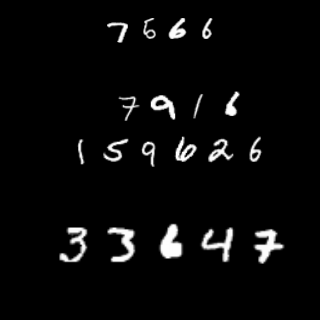 7566
7916
159626
33647